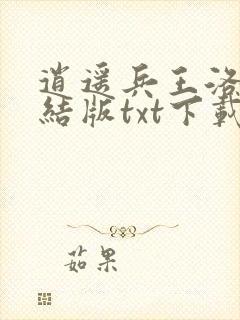 逍遥兵王洛
結版txt下載
茹果